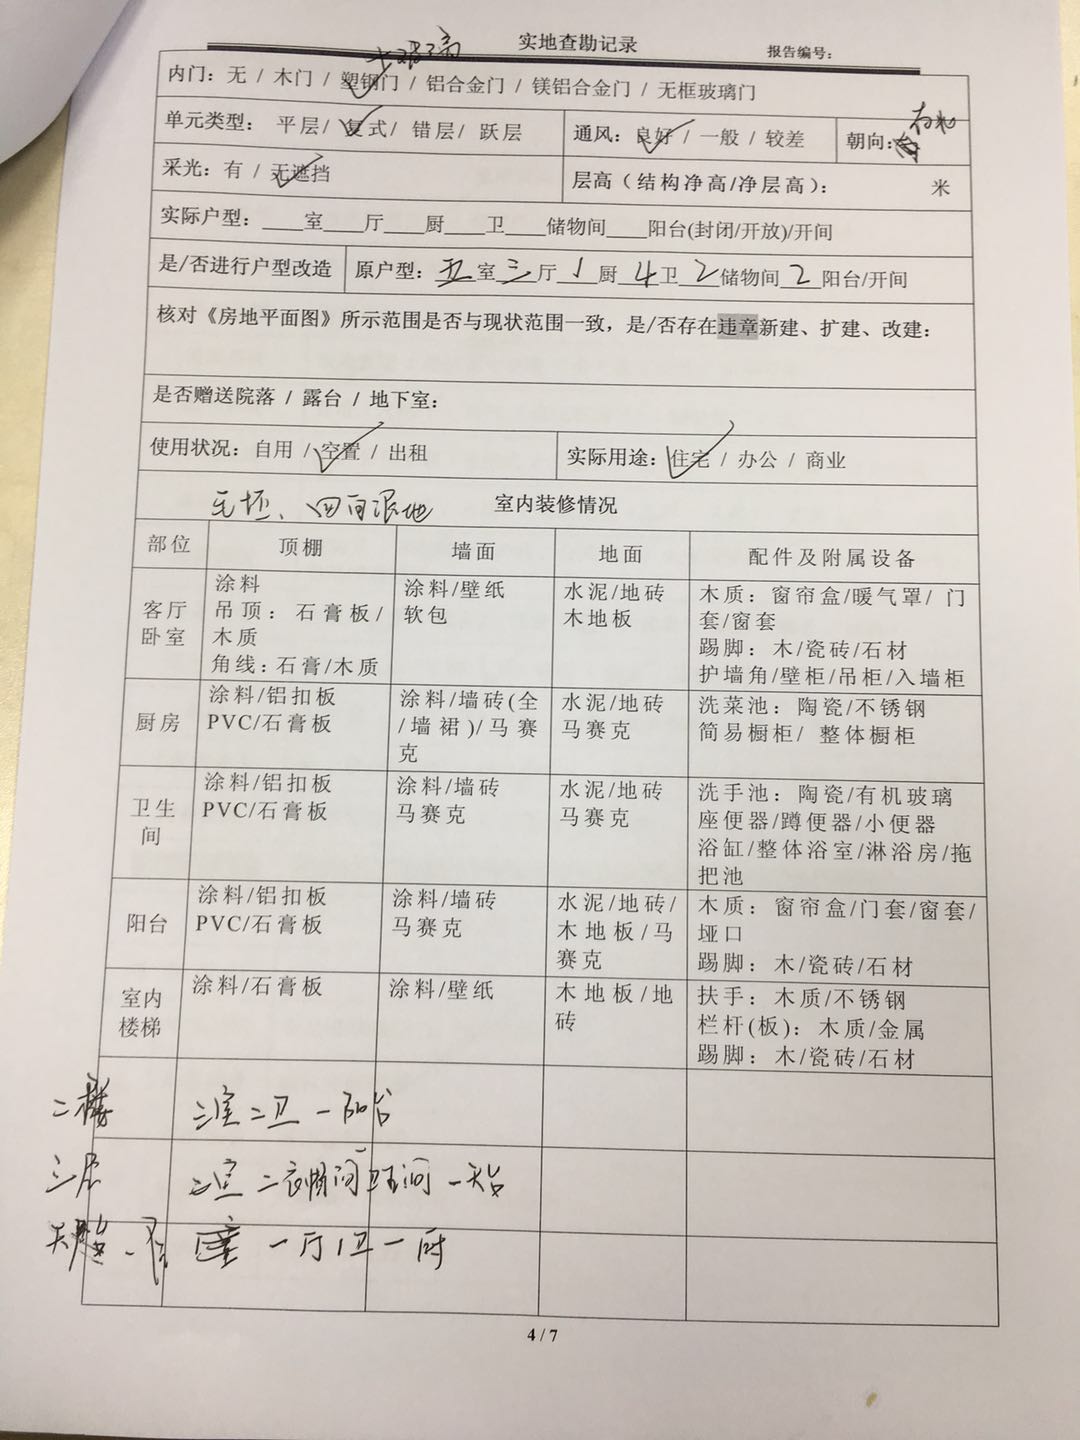 实地查勘记录
报告编号：
内门：无 / 木门 / 塑钢门 / 铝合金门 / 镁铝合金门 / 无框玻璃门
单元类型： 平层/ 复式/ 错层/ 跃层 通风：良好 / 一般 / 较差 朝向：
采光：有 / 无遮挡 层高（结构净高/净层高）： 米
实际户型：____室____厅____厨____卫____储物间____阳台(封闭/开放)/开间
是/否进行户型改造 原户型：五室三厅1厨4卫2储物间2阳台/开间
核对《房地平面图》所示范围是否与现状范围一致，是/否存在违章新建、扩建、改建：
是否赠送院落 / 露台 / 地下室：
使用状况：自用 / 空置 / 出租 实际用途：住宅 / 办公 / 商业
毛坯、四白 室内装修情况
部位 顶棚 墙面 地面 配件及附属设备
客厅
卧室
涂料
吊顶：石膏板/
木质
角线：石膏/木质
涂料/壁纸
软包
水泥/地砖
木地板
木质：窗帘盒/暖气罩/ 门
套/窗套
踢脚：木/瓷砖/石材
护墙角/壁柜/吊柜/入墙柜
厨房
涂料/铝扣板
PVC/石膏板
涂料/墙砖(全
/墙裙)/马赛
克
水泥/地砖
马赛克
洗菜池：陶瓷/不锈钢
简易橱柜/ 整体橱柜
卫生
间
涂料/铝扣板
PVC/石膏板
涂料/墙砖
马赛克
水泥/地砖
马赛克
洗手池：陶瓷/有机玻璃
座便器/蹲便器/小便器
浴缸/整体浴室/淋浴房/拖
把池
阳台
涂料/铝扣板
PVC/石膏板
涂料/墙砖
马赛克
水泥/地砖/
木地板/马
赛克
木质：窗帘盒/门套/窗套/
垭口
踢脚：木/瓷砖/石材
室内
楼梯
涂料/石膏板
涂料/壁纸
木地板/地
砖
扶手：木质/不锈钢
栏杆(板)：木质/金属
踢脚：木/瓷砖/石材
二楼 二室二卫一阳台
三层 二室二衣帽间
一厅1卫一厨
4 / 7